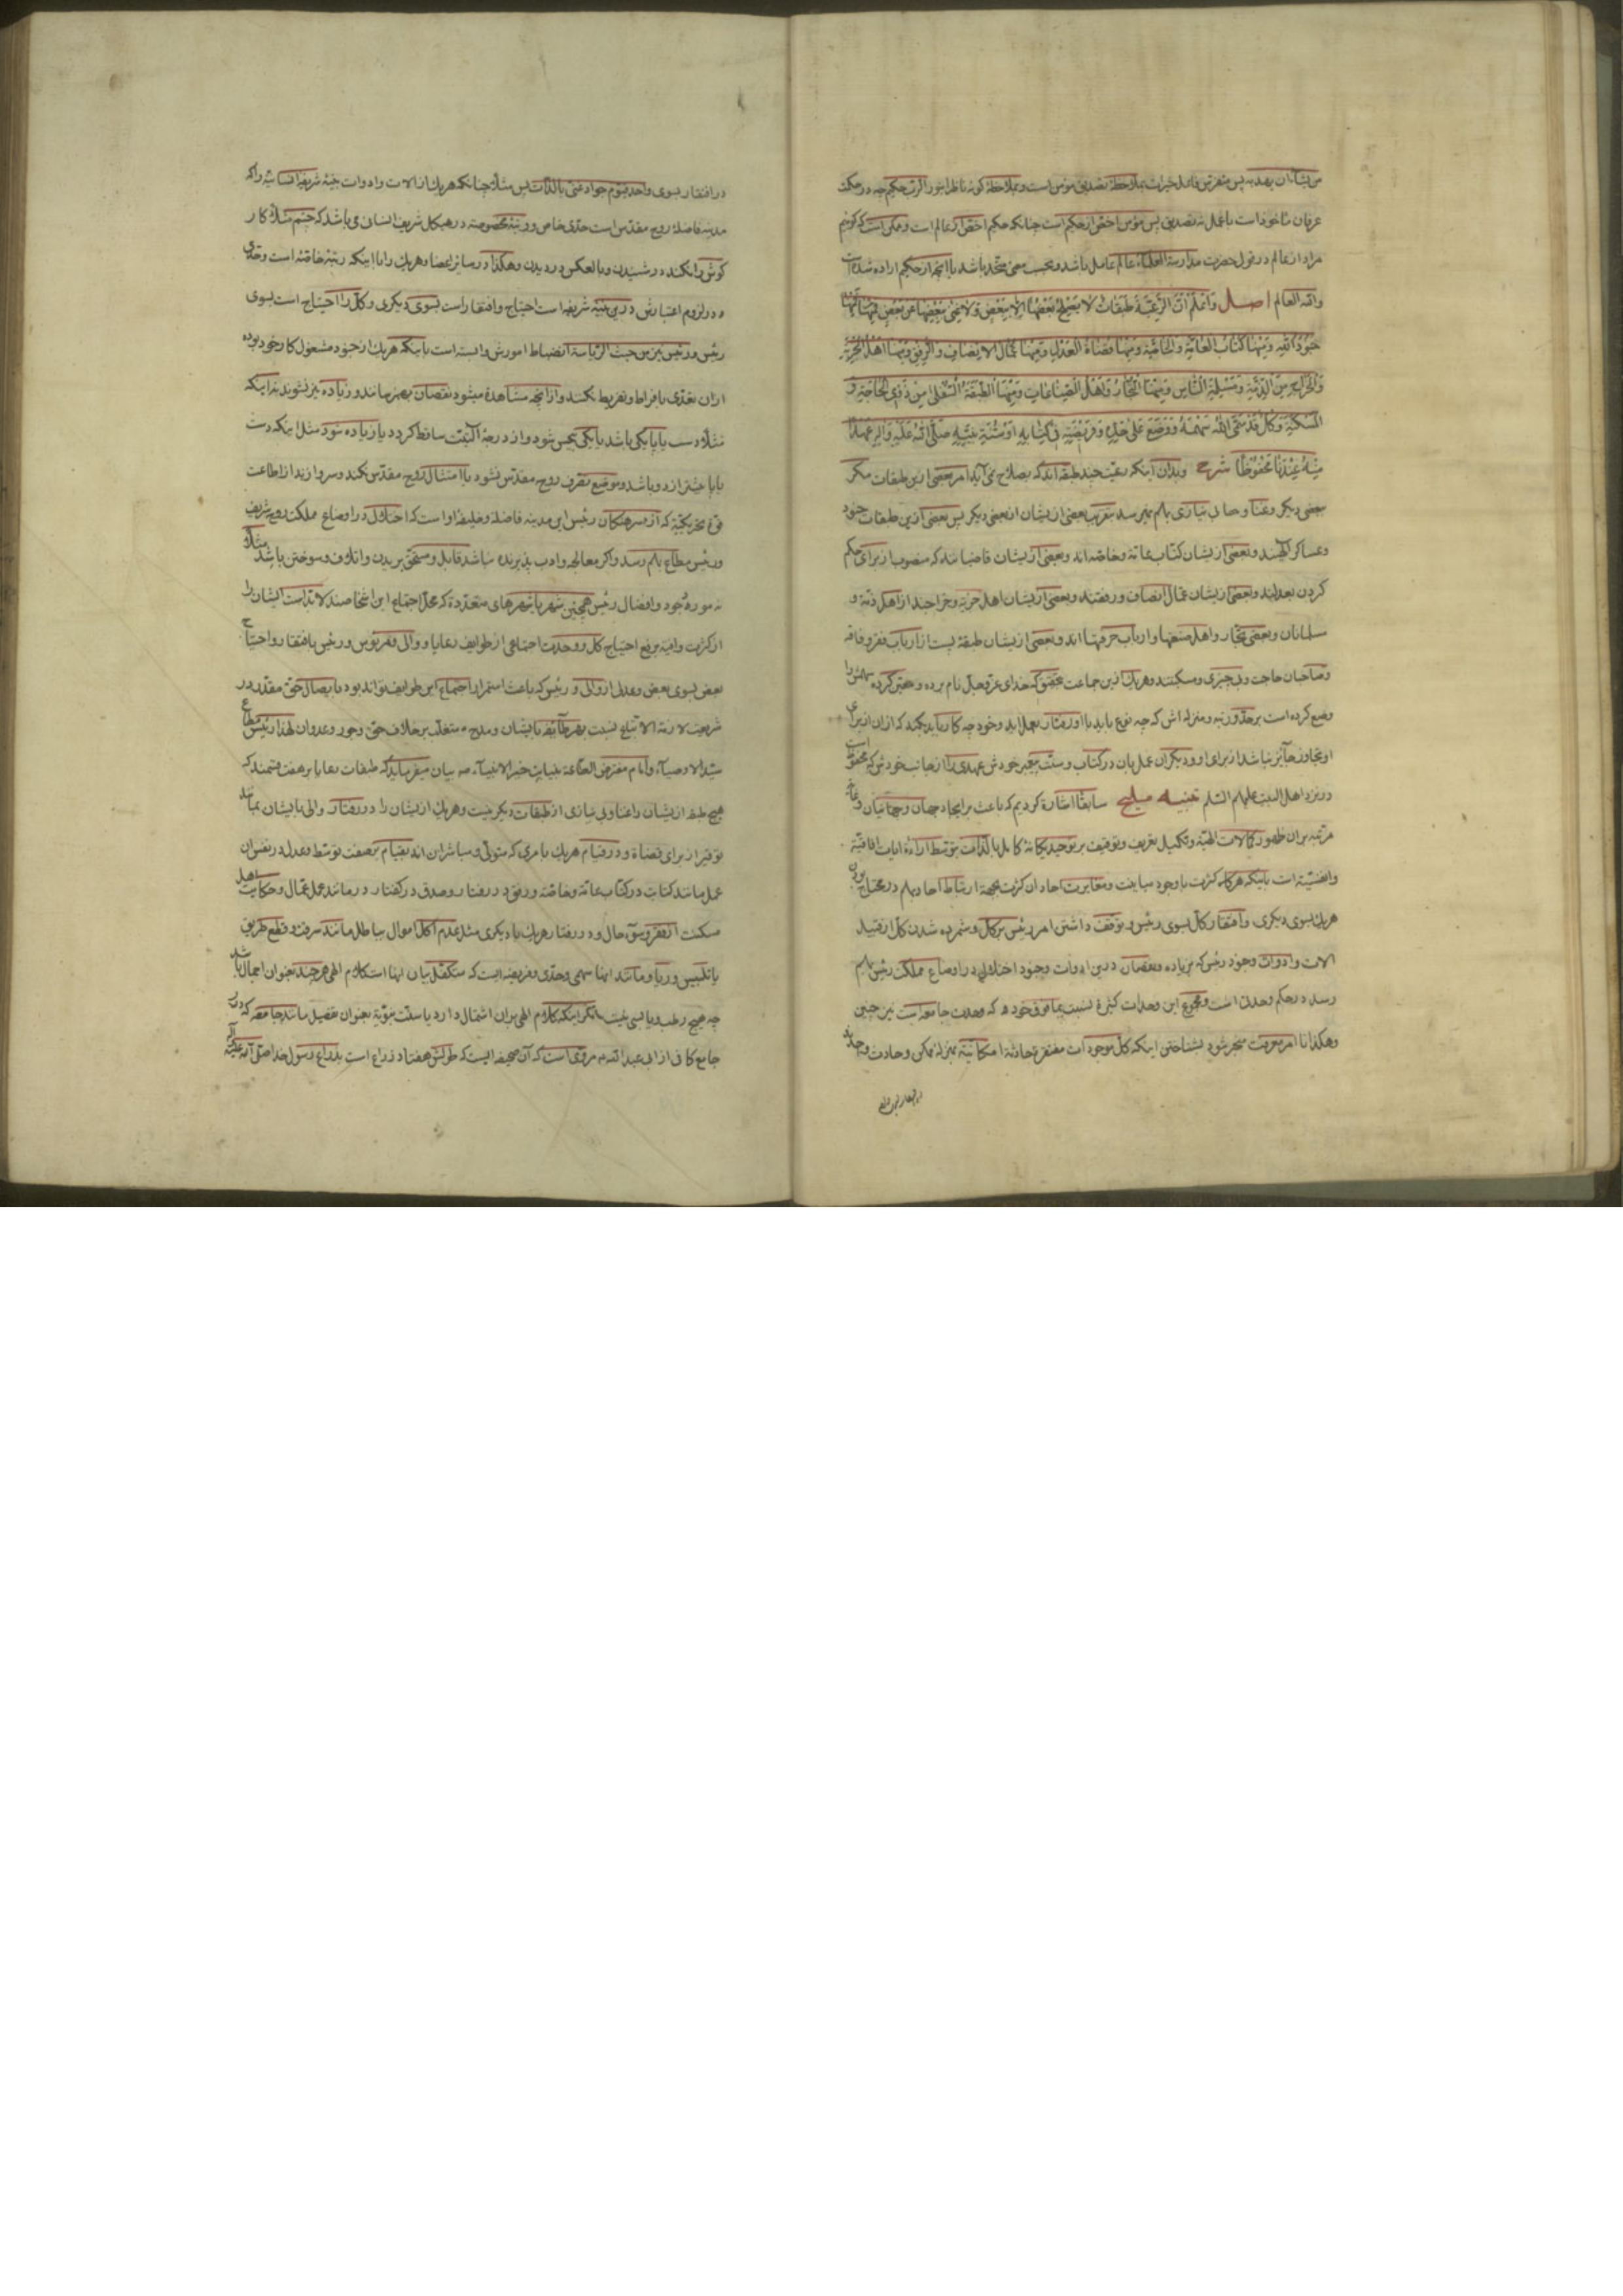 عرفان ماخوذ است با عمل نه تصدیق پس مؤمن اخصّ از حکیم است چنانکه حکیم اخصّ از عالم است و ممکن است که
مراد از عالم در قول حضرت مدارسة العلماء عالم عامل باشد و بحسب معنی متّحد باشد با آنچه از حکیم اراده شده است
والله العالم اصل وَاعْلَمْ اَنَّ الرَّعِیَّةَ طَبَقَاتٌ لَا یَصْلُحُ بَعْضُهَا اِلَّا بِبَعْضٍ وَلَا غِنٰی بِبَعْضِهَا عَنْ بَعْضٍ فَمِنْهَا
جُنُودُ اللهِ وَمِنْهَا کُتَّابُ الْعَامَّةِ وَالْخَاصَّةِ وَمِنْهَا قُضَاةُ الْعَدْلِ وَمِنْهَا عُمَّالُ الْاِنْصَافِ وَالرِّفْقِ وَمِنْهَا اَهْلُ الْجِزْیَةِ
وَالْخَرَاجِ مِنْ اَهْلِ الذِّمَّةِ وَمُسْلِمَةِ النَّاسِ وَمِنْهَا التُّجَّارُ وَاَهْلُ الصِّنَاعَاتِ وَمِنْهَا الطَّبَقَةُ السُّفْلٰی مِنْ ذَوِی الْحَاجَةِ وَ
الْمَسْکَنَةِ وَکُلٌّ قَدْ سَمَّی اللهُ سَهْمَهُ وَوَضَعَ عَلٰی حَدِّهِ وَفَرِیضَتِهِ فِی کِتَابِهِ اَوْ سُنَّةِ نَبِیِّهِ صَلَّی اللهُ عَلَیْهِ وَآلِهِ عَهْدًا
مِنْهُ عِنْدَنَا مَحْفُوظًا شرح وبدان اینکه رعیّت چند طبقه‌اند که بصلاح نمی‌آید امر بعضی ازین طبقات مکر
ببعضی دیکر وغنا و بی نیازی بهم نمیرسد بعضی از یشان از بعضی دیکر پس بعضی ازین طبقات جنود
وعساکر الهیند وبعضی از یشان کتّاب عامّه وخاصّه اند وبعضی از یشان قاضیانند که منصوب از برای حکم
کردن بعدلند وبعضی از یشان عمّال انصاف ورفقند وبعضی از یشان اهل جزیه وخراجند از اهل ذمّه و
مسلمانان وبعضی تجّار واهل صنعتها وارباب حرفتها اند وبعضی از یشان طبقهٔ پست از ارباب فقر وفاقه
وصاحبان حاجت وبی چیزی ومسکنتند وهریک ازین جماعت بتحقیق که خدای عزّ وجلّ نام برده ومعیّن کرده سهمش را
وضع کرده است بر حدّ ورتبه ومنزله اش که چه نوع باید با او رفتار بعمل اید وخود چه کار باید بکند که از ان از برای
او تجاوز جآئز نباشد از برای او ودیکران عمل بان در کتاب وسنّت پیغمبر خودش عهدی را از جانب خودش که محفوظ است
در نزد اهل البیت علیهم السّلم تنبیه ملیح سابقًا اشاره کردیم که باعث بر ایجاد جهان وجهانیان
مرتّبه بران ظهور کمالات الهیّه وتکمیل تعریف وتوقیف بر توحید یکانهٔ کامل بالذّات بتوسّط اراءهٔ ایات افاقیّه
وانفسیّه است باینکه هر کاه کثرت با وجود مباینت ومغایرت احاد ان کثرت بجهة ارتباط احاد بهم در محتاج بودن
هریک بسوی دیکری وافتقار کلّ بسوی رئیس وتوقّف داشتن امر رئیس بر کلّ وشمرده شدن کلّ از قبیل
الات وادوات وجود رئیس که بزیاده ونقصان درین ادوات وجود اختلال در اوضاع مملکت رئیس بهم
رسد در حکم وحدتی است ومجموع این وحدات کثیرهٔ نسبت بما فوق خود که وحدت جامعه است نیز چنین
وهکذا تا امر معرفت منجر شود بشناختن اینکه کلّ موجودات مفتقرهٔ حادثهٔ امکانیّه بمنزله ممکن وحادث واحدند
در افتقار بسوی واحد قیّوم جواد غنیّ بالذّات پس مثلًا چنانکه هریک از الات وادوات بنیهٔ شریفهٔ انسانیّه را که
مدینه فاضلهٔ روح مقدّس است حدّی خاص ورتبهٔ مخصوصه در هیکل شریف انسان می باشد که چشم مثلًا کار
کوش را نکند در شنیدن وبالعکس در دیدن وهکذا در سائر اعضا وهریک را با اینکه رتبهٔ خاصّه است وحدّی
در لزوم اعتبارش درین بنیهٔ شریفه است احتیاج وافتقار است بسوی دیکری وکلّ را احتیاج است بسوی
رئیس ورئیس نیز من حیث الرّیاسة انضباط امورش وابسته است باینکه هریک از خود مشغول کار خود بوده
از ان تعدّی بافراط وتفریط نکنند واز آنچه مشاهده میشود نقصان بهم نرسانند وزیاده نیز نشوند نه اینکه
مثلًا دست یا پا یکی باشد یا یکی بیحس شود واز درجهٔ آلیّت ساقط کردد یا زیاده شود مثل اینکه دست
یا پا بیشتر از دو باشد وموضع تصرّف روح مقدّس نشود یا امتثال روح مقدّس نکند وسر وا زند از اطاعت
قوّهٔ محرّکه که از سرهنکان رئیس این مدینه فاضله وخلیفهٔ اواست که اختلال در اوضاع مملکت روح شریف
ورئیس مطاع بهم رسد واکر معالجه وادب پذیرنده نباشد قابل ومستحقّ بریدن واتلاف وسوختن باشد مثلًا
نه مورد جود وافضال رئیس همچنین شهر یا شهرهای متعدّده که محلّ اجتماع این اشخاصند لا بدّ است ایشان را
بعض بسوی بعض وعدلی از والی ورئیس که باعث استمرار اجتماع این طوایف تواند بود با یصال حقّ مقدّر در
سیّد الاوصیآء وامام مفترض الطّاعة بنیابت خیر الانبیآء صه بیان میفرماید که طبقات رعایا بر هفت قسمند که
هیچ طبقه از یشان را غنا وبی نیازی از طبقات دیکر نیست وهریک از یشان را در رفتار والی با یشان
عمل مانند کتابت در کتّاب عامّه وخاصّه ورفق در رفتار وصدق در کفتار در مانند عمل عمّال وحکایت اهل
مسکنت از فقر وسوٓء حال ودر رفتار هریک با دیکری مثل عدم اکل اموال بباطل مانند سرقت وقطع طریق
یا تلبیس وریا ومانند اینها سهمی وحدّی وفریضه ایست که متکفّل بیان اینها است کلام الهی هرچند بعنوان اجمال باشد
چه هیچ رطب ویابسی نیست مکر اینکه کلام الهی بران اشتمال دارد یا سنّت نبویّه بعنوان تفصیل مانند جامعه که در
جامع کافی از ابی عبد الله م مروی است که آن صحیفه ایست که طولش هفتاد ذراع است بذراع رسول خدا صلّی الله علیه وآله